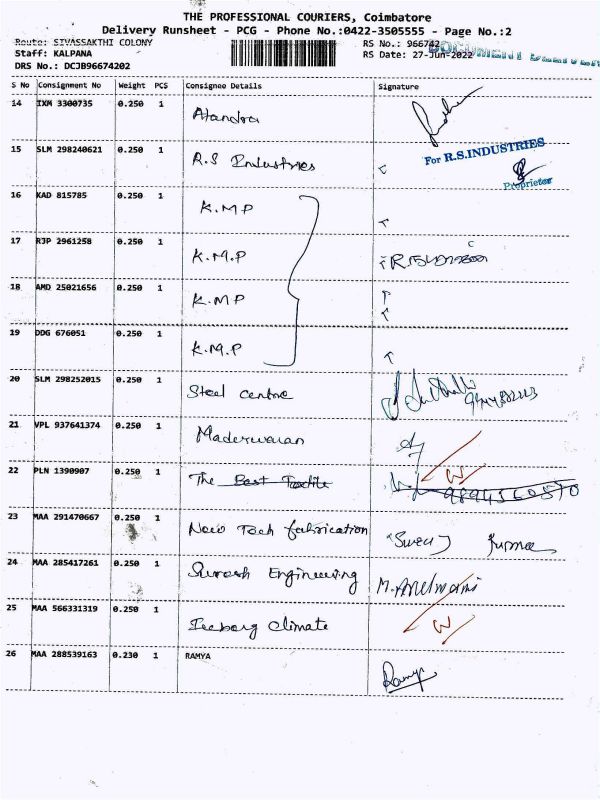 THE PROFESSIONAL COURIERS, Coimbatore
Delivery Runsheet - PCG - Phone No.:0422-3505555 - Page No.:2
Route: SIVASSAKTHI COLONY
Staff: KALPANA
DRS No.: DCJB96674202
RS No.: 966742
RS Date: 27-Jun-2022
DOCUMENT
S No Consignment No Weight PCS Consignee Details Signature
14 IXM 3300735 0.250 1
15 SLM 298240621 0.250 1 R.S Industries For R.S.INDUSTRIES
Proprietor
16 KAD 815785 0.250 1 K.M.P
17 RJP 2961258 0.250 1 K.M.P
18 AMD 25021656 0.250 1 K.M.P
19 DDG 676051 0.250 1 K.M.P
20 SLM 298252015 0.250 1 Steel centre
21 VPL 937641374 0.250 1
22 PLN 1390907 0.250 1 The Best Textile
23 MAA 291470667 0.250 1 New Tech fabrication
24 MAA 285417261 0.250 1 Suresh Engineering
25 MAA 566331319 0.250 1 Iceberg climate
26 MAA 288539163 0.230 1 RAMYA Ramya